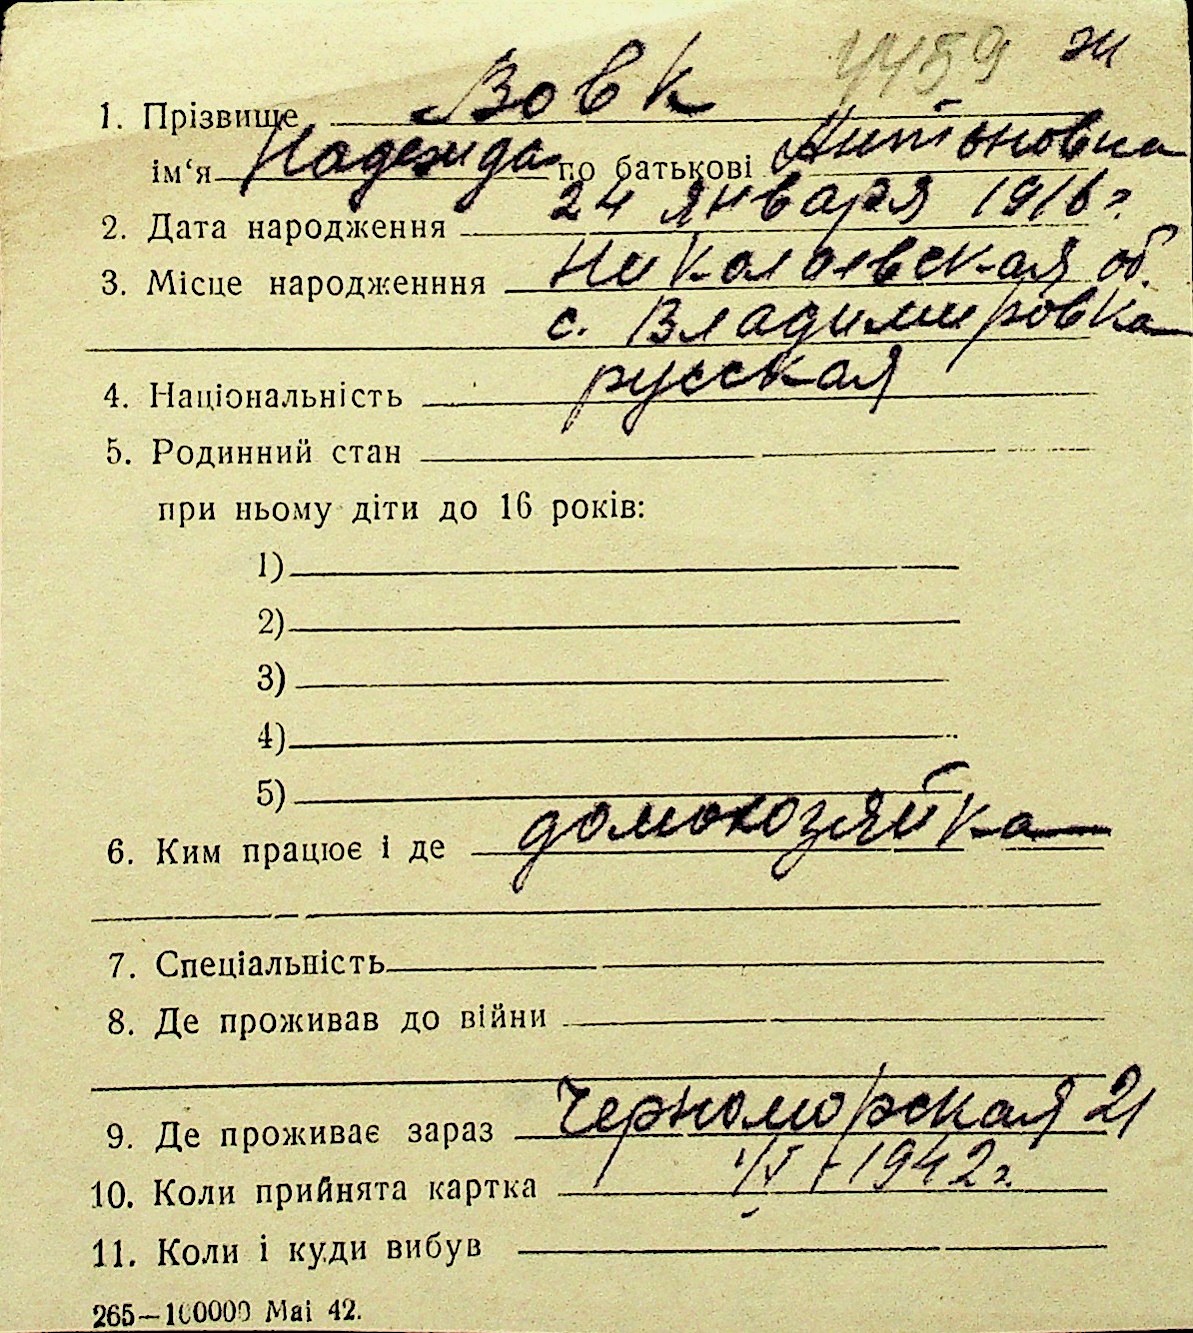 4459 ж
1. Прізвище Вовк
ім‘я Надежда по батькові Антоновна
2. Дата народження 24 января 1916 г.
3. Місце народженння Николаевская об.
с. Владимировка
4. Національність русская
5. Родинний стан
при ньому діти до 16 років:
1)
2)
3)
4)
5)
6. Ким працює і де домохозяйка
7. Спеціальність
8. Де проживав до війни
9. Де проживає зараз Черноморская 21
10. Коли прийнята картка 1942 г.
11. Коли і куди вибув
265—100000 Mai 42.